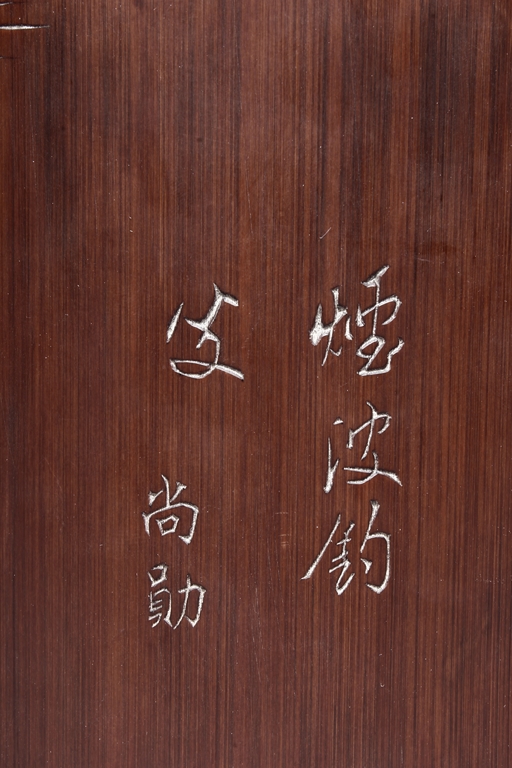 煙波釣
叟
尚勛